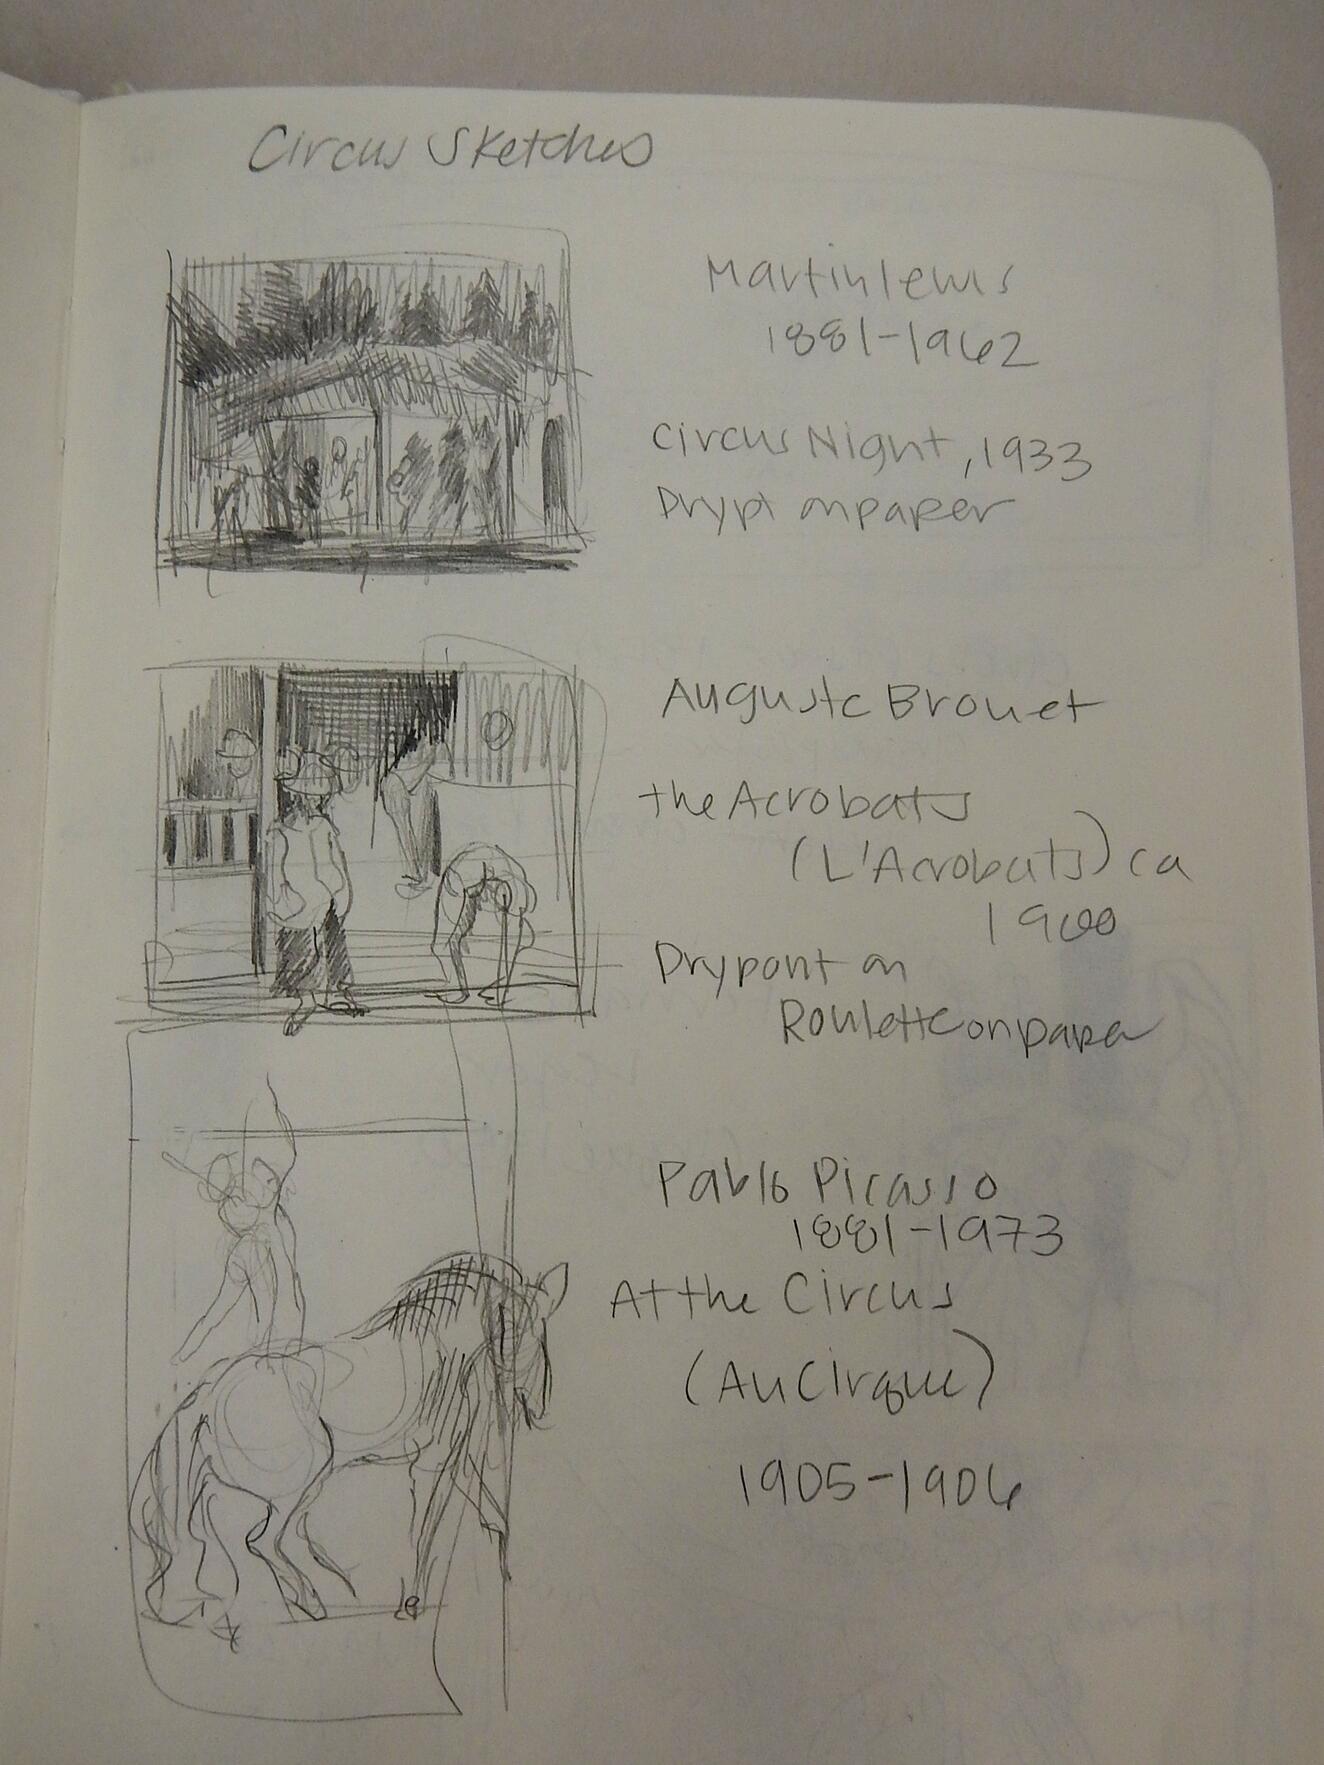 Circus Sketches
Martin lewis
1881-1962
Circus Night, 1933
Drypt on paper
Auguste Brouet
the Acrobats
(L'Acrobats) ca
1900
Drypont on
Roulette on paper
Pablo Picasso
1881-1973
At the Circus
(Au Cirque)
1905-1906